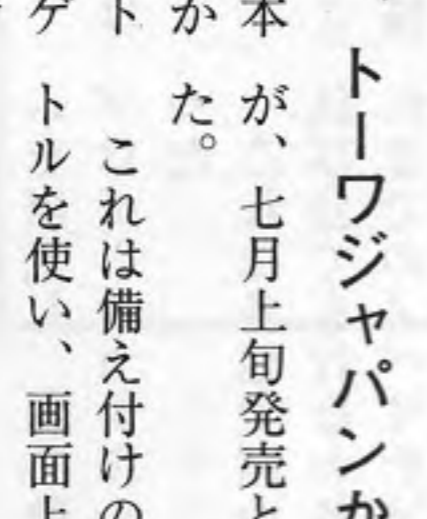 トーワジャパンか
本 が、七月上旬発売と
か た。
ト これは備え付けの
ゲ トルを使い、画面上